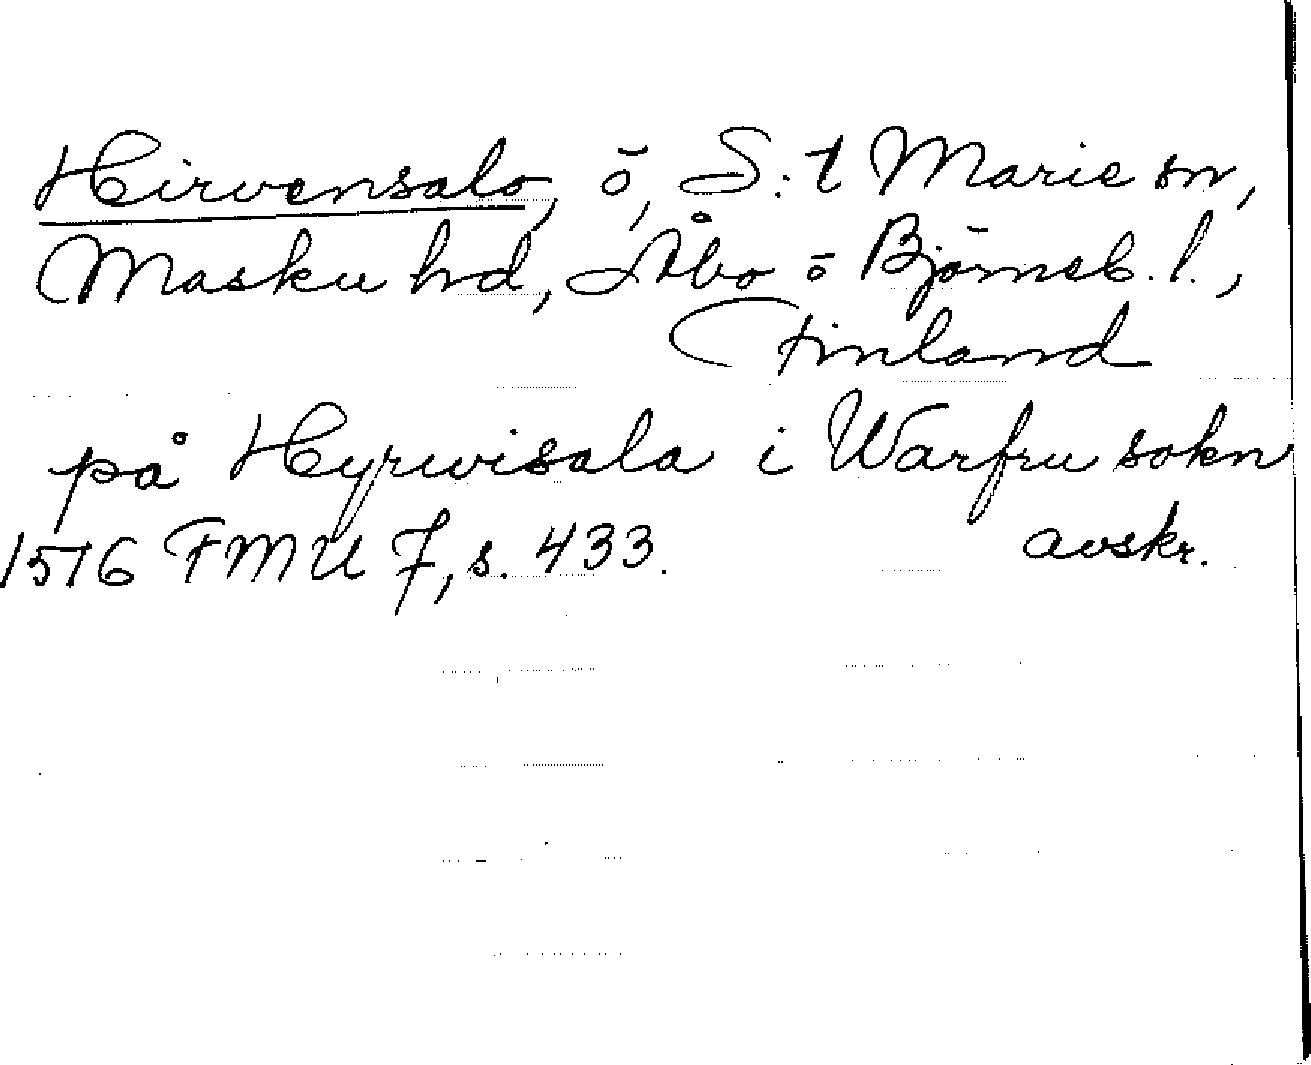 Hirvensalo, ö, S:t Marie sn,
Masku hd, Åbo o Björneb. l.,
Finland
på Hyrwisala i Warfru sokn
1516 FMU 7, s. 433. avskr.